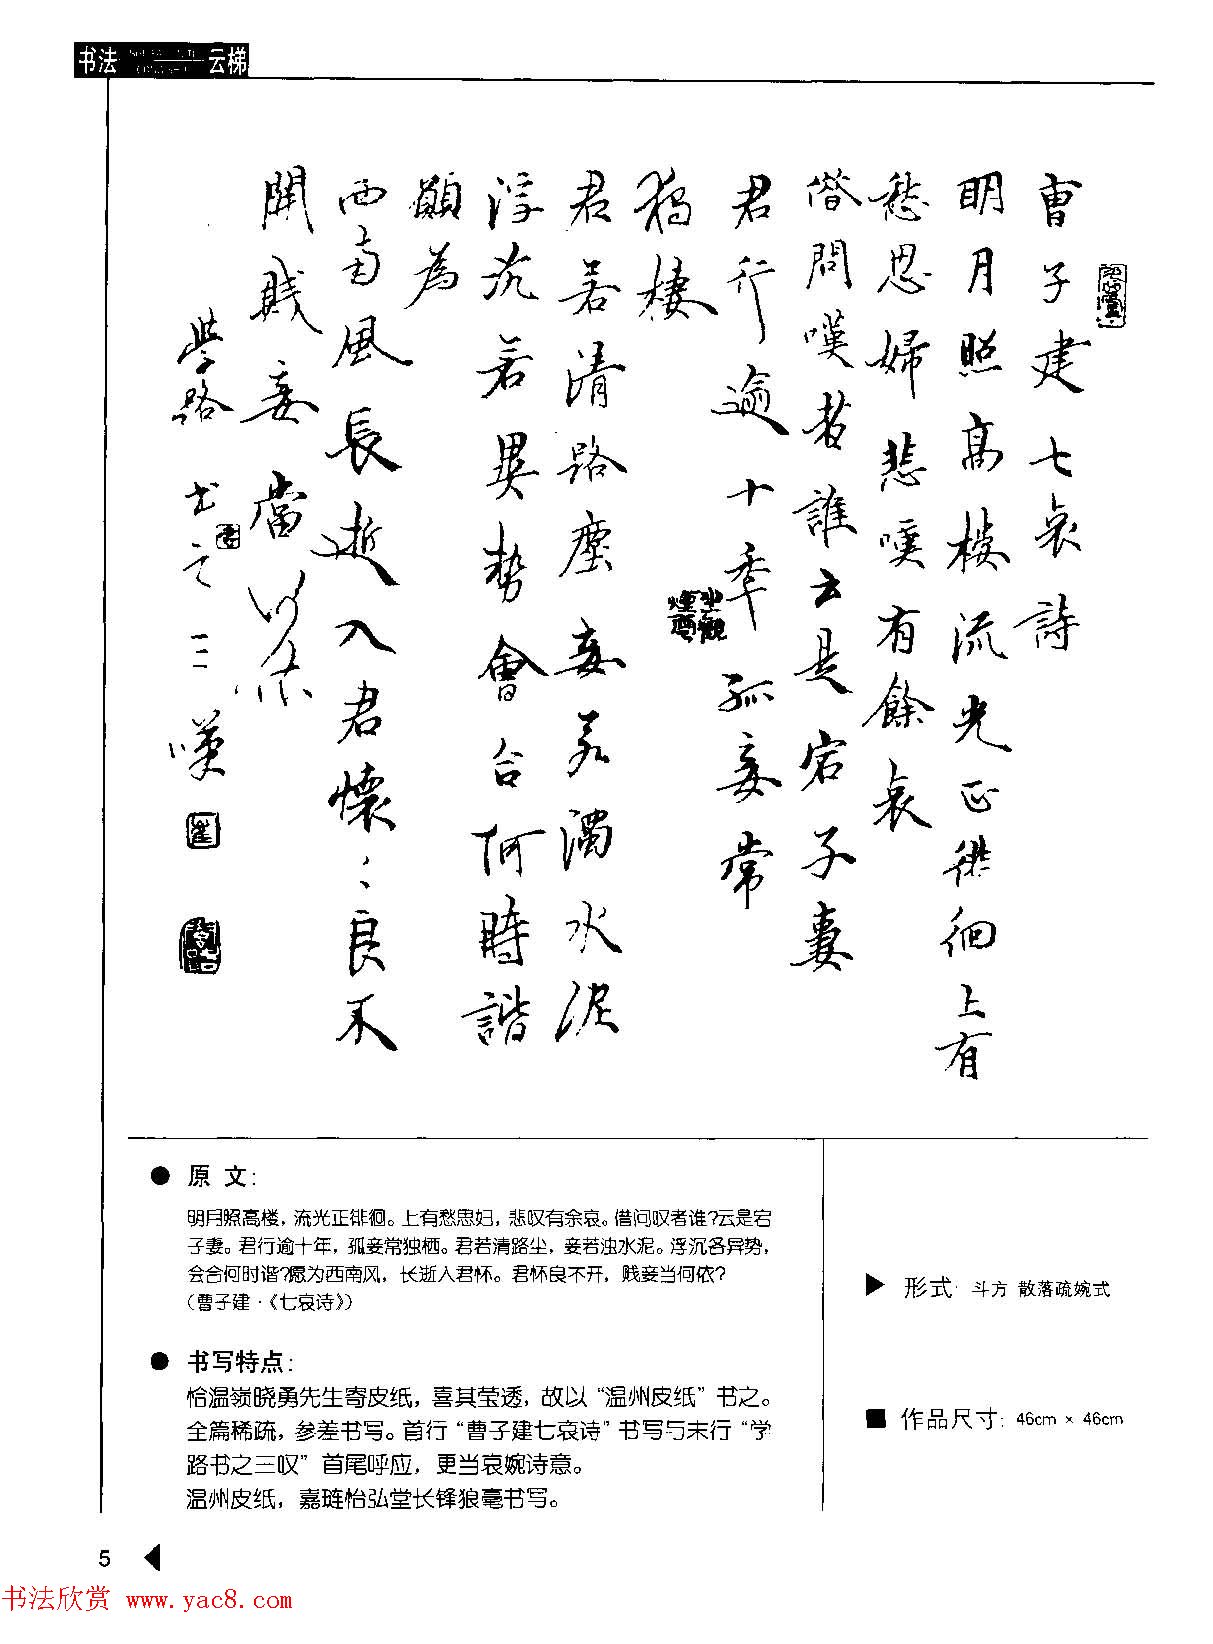 书法
云梯
曹子建七哀詩
明月照高楼流光正徘徊上有
愁思婦悲嘆有餘哀
借問嘆者誰云是宕子妻
君行逾十年孤妾常
獨棲
君若清路塵妾若濁水泥
浮沉各異势會合何時諧
願為
西南風長逝入君懷〻良不
開賤妾當何依
学路书之三嘆
● 原 文：
明月照高楼，流光正徘徊。上有愁思妇，悲叹有余哀。借问叹者谁？云是宕
子妻。君行逾十年，孤妾常独栖。君若清路尘，妾若浊水泥。浮沉各异势，
会合何时谐？愿为西南风，长逝入君怀。君怀良不开，贱妾当何依？
（曹子建·《七哀诗》）
● 书写特点：
恰温岭晓勇先生寄皮纸，喜其莹透，故以“温州皮纸”书之。
全篇稀疏，参差书写。首行“曹子建七哀诗”书写与末行“学
路书之三叹”首尾呼应，更当哀婉诗意。
温州皮纸，嘉琏怡弘堂长锋狼毫书写。
▶ 形式 斗方 散落疏婉式
■ 作品尺寸：46cm × 46cm
5 ◀
书法欣赏 www.yac8.com